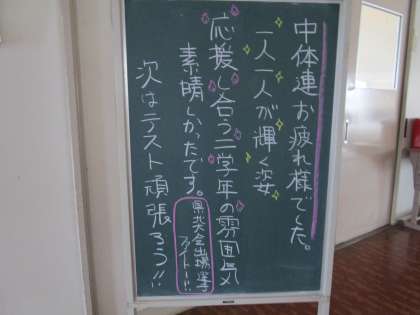 中体連お疲れ様でした。
一人一人が輝く姿
応援し合う二学年の雰囲気
素晴しかったです。
県北大会出場選手
ファイトー!!
次はテスト頑張ろう!!